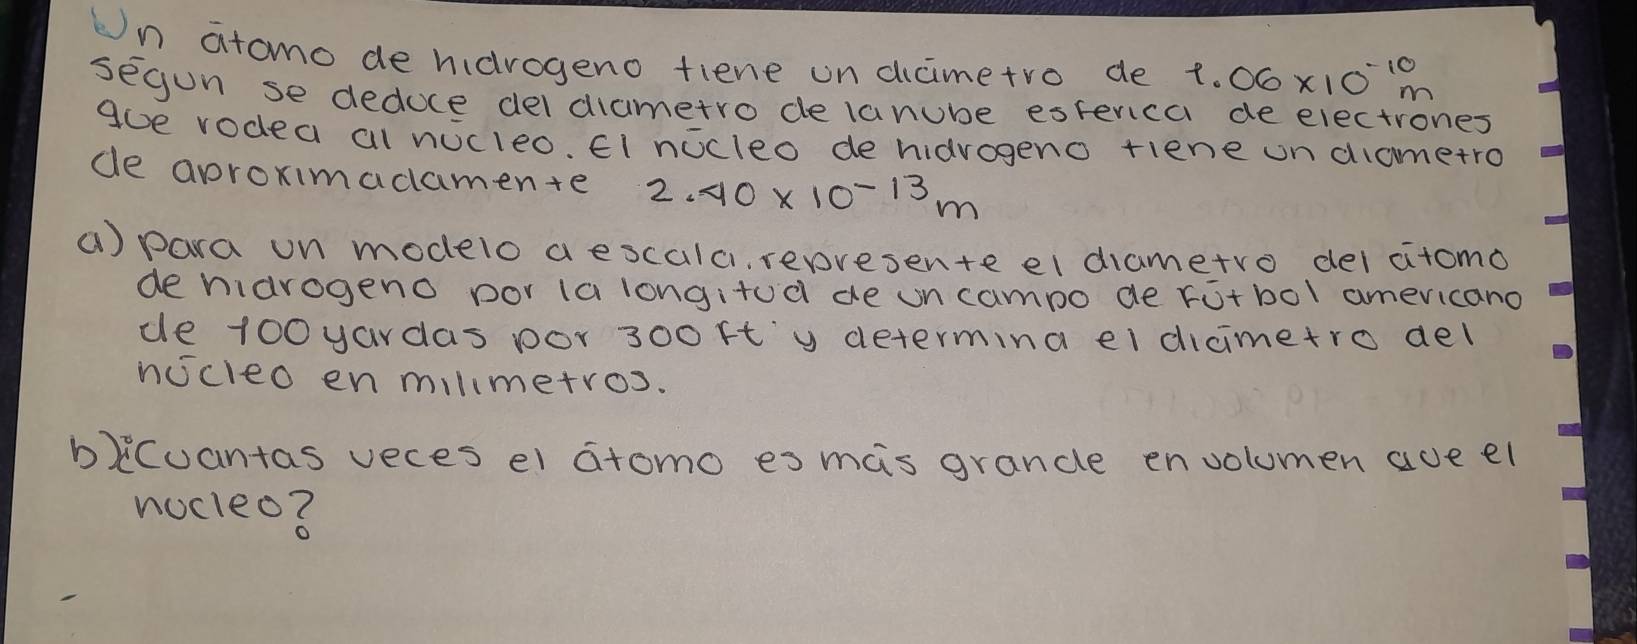 Un átomo de hidrogeno tiene un diámetro de 1.06x10⁻¹⁰ m
ségun se deduce del diametro de la nube esferica de electrones
que rodea al núcleo. El núcleo de hidrogeno tiene un diametro
de aproximadamente 2.40 x 10⁻¹³ m
a) para un modelo a escala, represente el diametro del átomo
de hidrogeno por la longitud de un campo de fútbol americano
de 100 yardas por 300 ft y determina el diámetro del
núcleo en milimetros.
b) ¿Cuantas veces el átomo es más grande en volumen que el
nucleo?